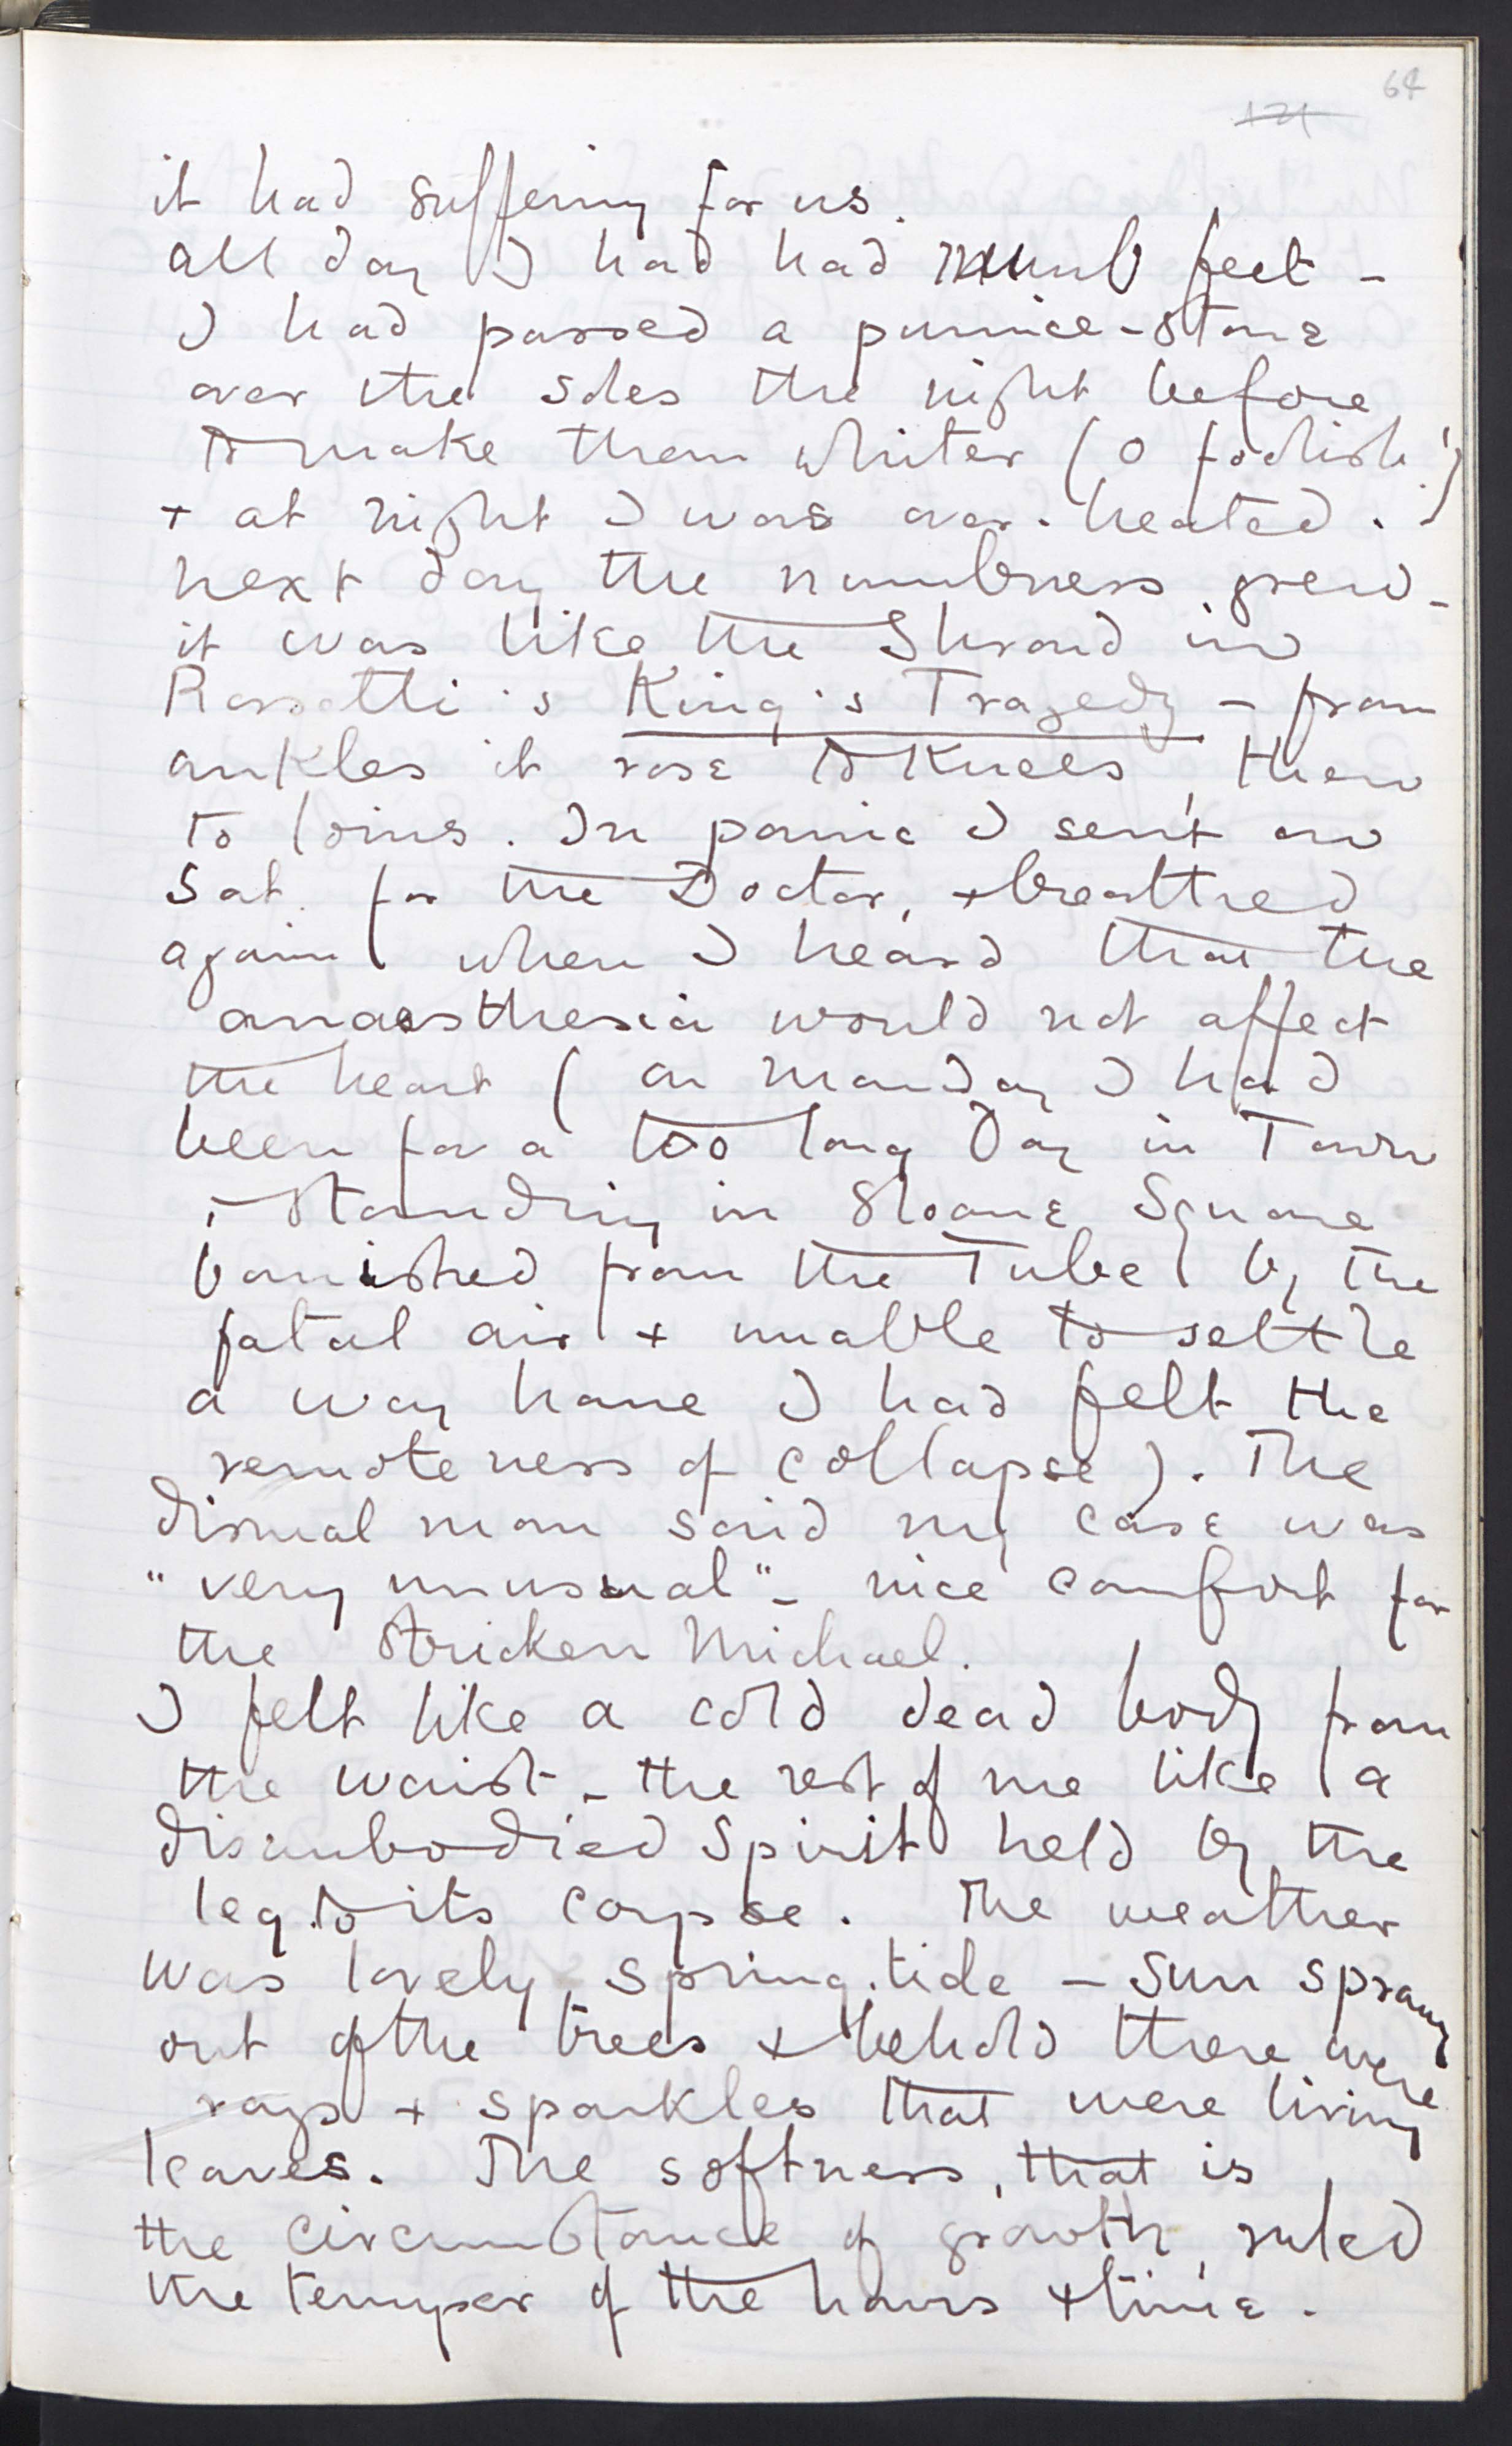 64
121
it had suffering for us.
All day I had had numb feet -
I had passed a pumice-stone
over the soles the night before
to make them whiter (O foolish!)
+ at night I was over-heated. -
Next day the numbness grew -
it was like the Shroud in
Rossetti's King's Tragedy - from
ankles it rose to knees, then
to loins. In panic I sent on
Sat. for the Doctor, + breathed
again when I heard that the
anaesthesia would not affect
the heart (on Monday I had
been for a too long Day in Town
, standing in Sloane Square
banished from the Tube by the
fatal air + unable to settle
a way home I had felt the
remoteness of collapse). The
dismal man said my case was
"very unusual" - nice comfort for
the stricken Michael.
I felt like a cold dead body from
the waist - the rest of me like a
disembodied spirit held by the
leg to its corpse. The weather
was lovely spring-tide - Sun sprang
out of the trees + behold there were
rays + sparkles that were living
leaves. The softness, that is
the circumstance of growth, ruled
the temper of the hours + time.